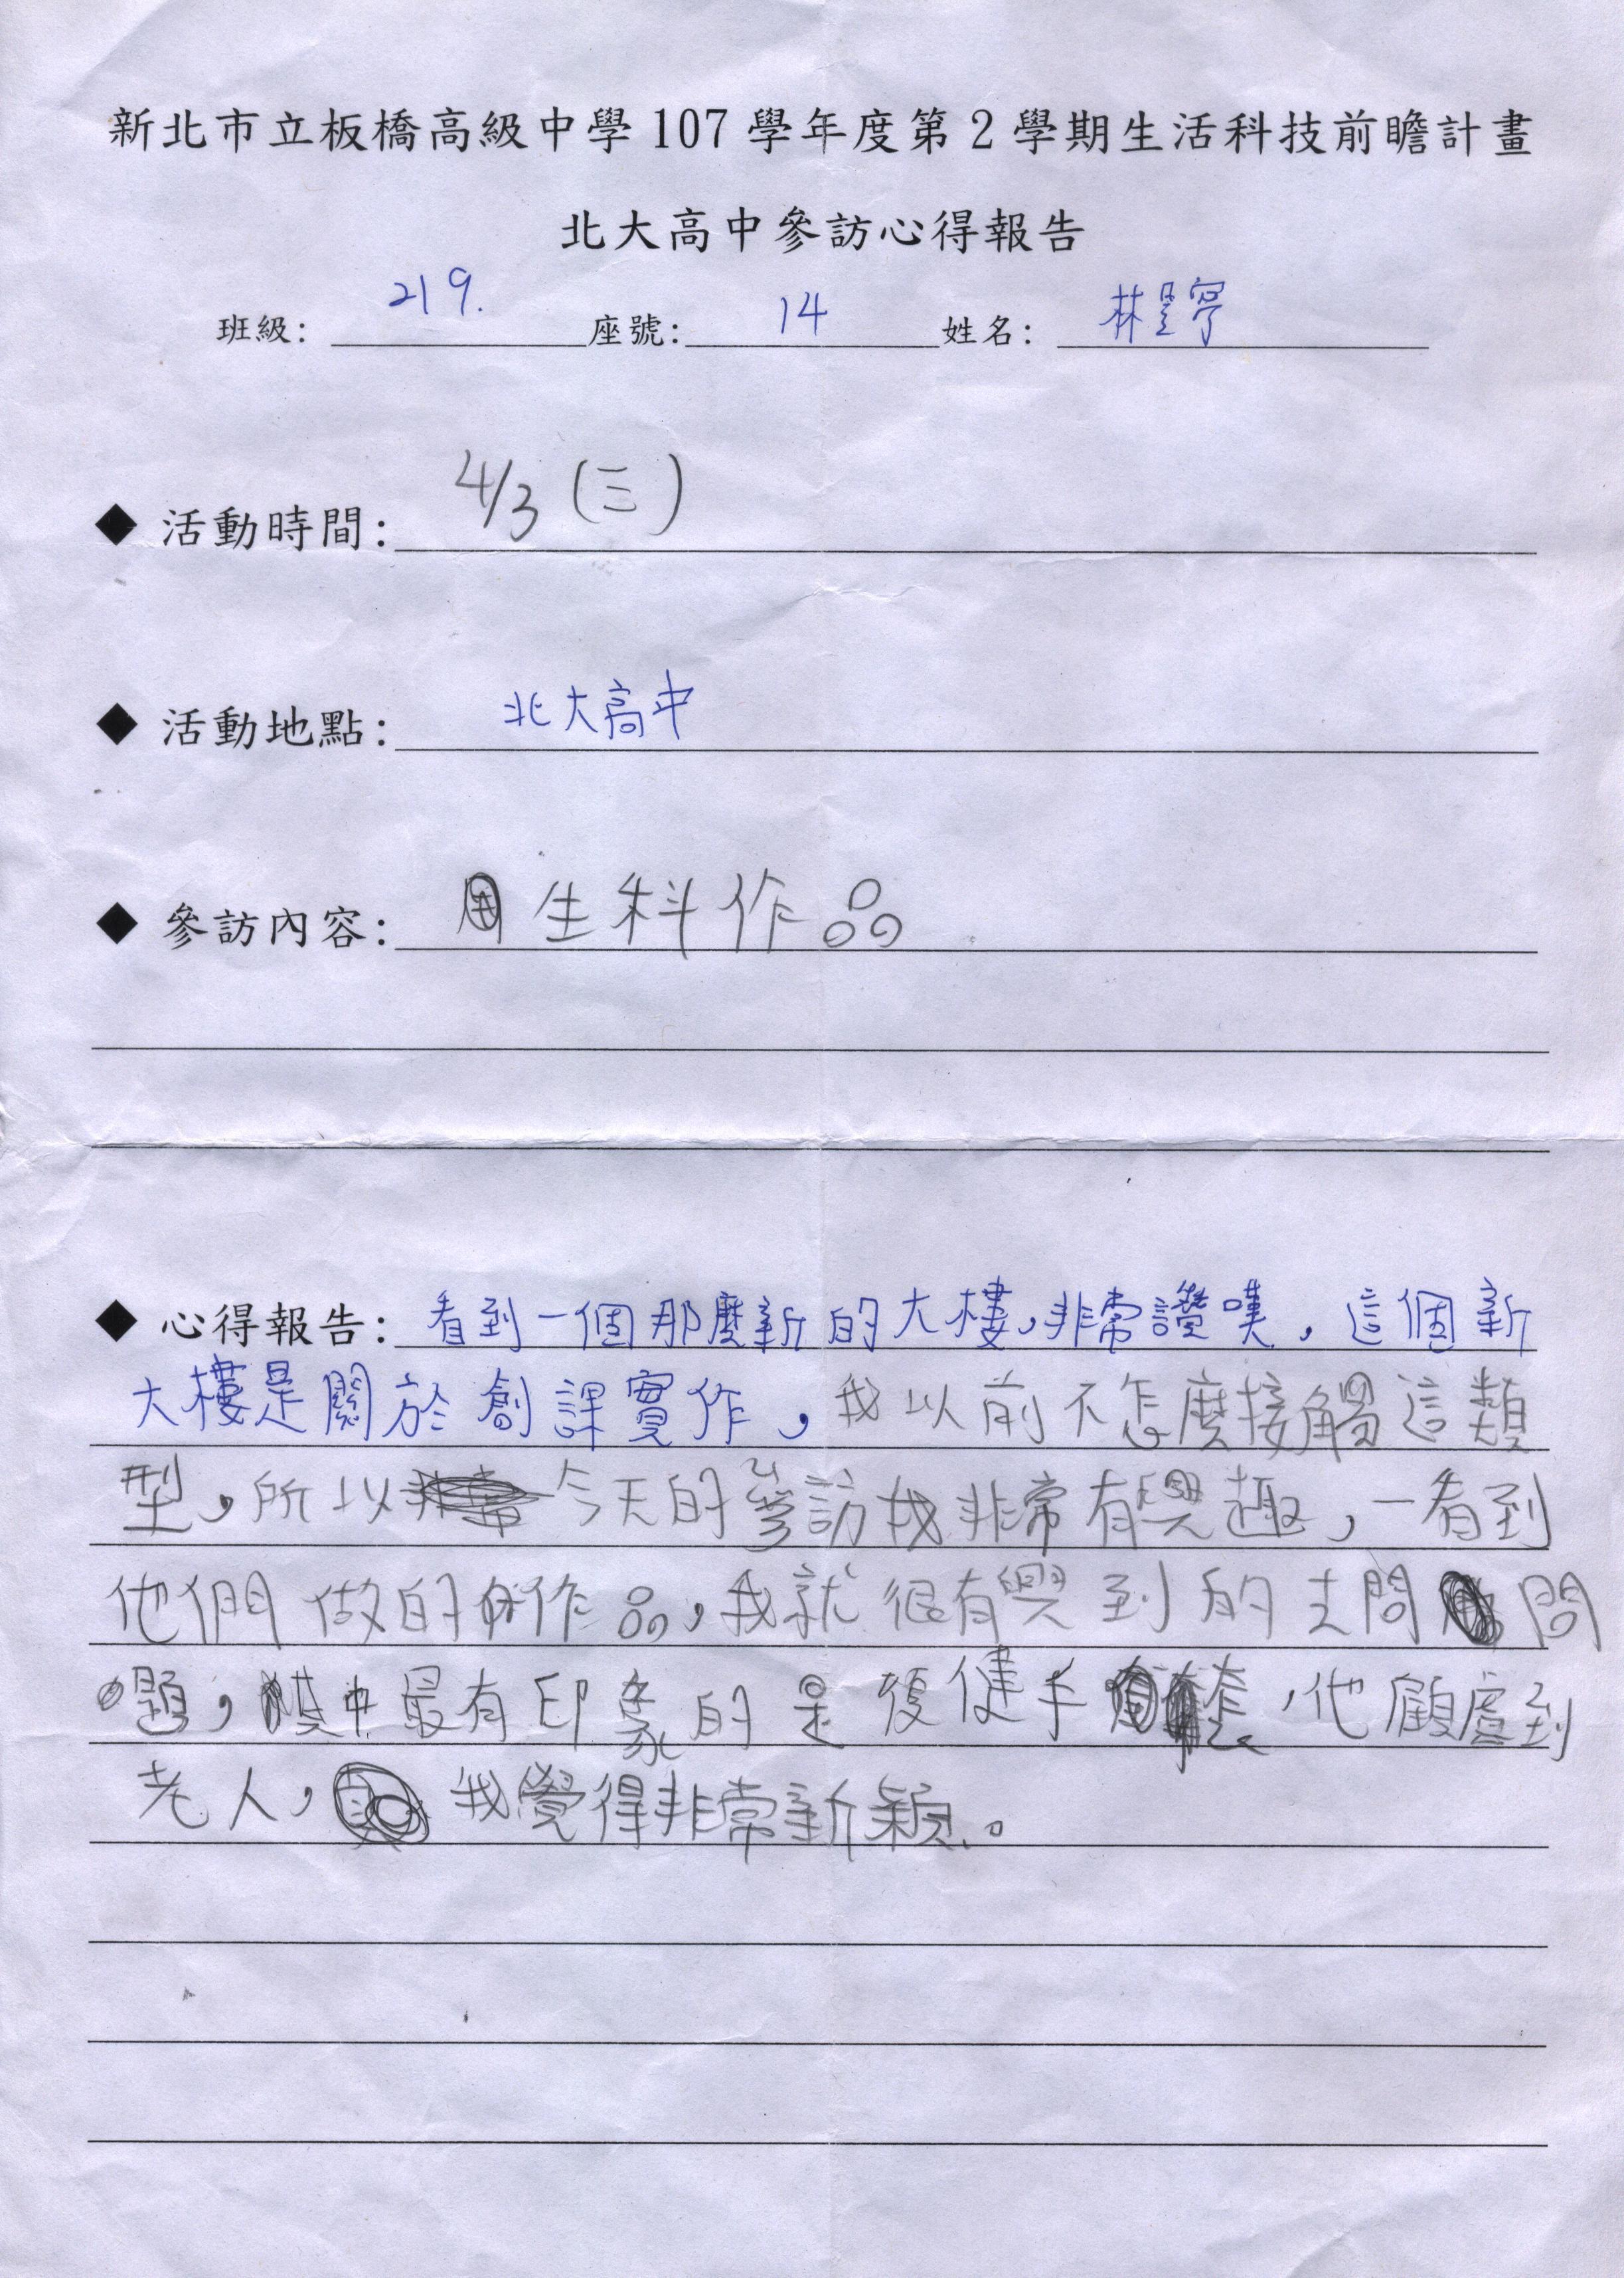 新北市立板橋高級中學107學年度第2學期生活科技前瞻計畫
北大高中參訪心得報告
班級: 219. 座號: 14 姓名: 林昱寧
◆ 活動時間: 4/3 (三)
◆ 活動地點: 北大高中
◆ 參訪內容: 生科作品
◆ 心得報告: 看到一個那麼新的大樓,非常讚嘆,這個新
大樓是關於創課實作,我以前不怎麼接觸這類
型,所以今天的參訪我非常有興趣,一看到
他們做的作品,我就很有興到的去問問
題,其中最有印象的是復健手套,他顧慮到
老人,我覺得非常新穎。